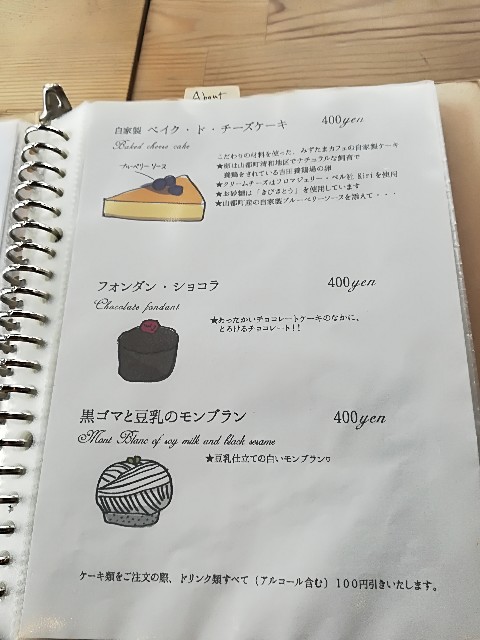 About
自家製 ベイク・ド・チーズケーキ 400yen
Baked cheese cake
こだわりの材料を使った、みずたまカフェの自家製ケーキ
ブルーベリーソース
★卵は山都町清和地区でナチュラルな飼育で
養鶏をされている吉田養鶏場の卵
★クリームチーズはフロマジェリー・ベル社 Kiriを使用
★お砂糖は「きびさとう」を使用しています
★山都町産の自家製ブルーベリーソースを添えて・・・
フォンダン・ショコラ 400yen
Chocolate fondant
★あったかいチョコレートケーキのなかに、
とろけるチョコレート!!
黒ゴマと豆乳のモンブラン 400yen
Mont Blanc of soy milk and black sesame
★豆乳仕立ての白いモンブラン♡
ケーキ類をご注文の際、ドリンク類すべて（アルコール含む）100円引きいたします。